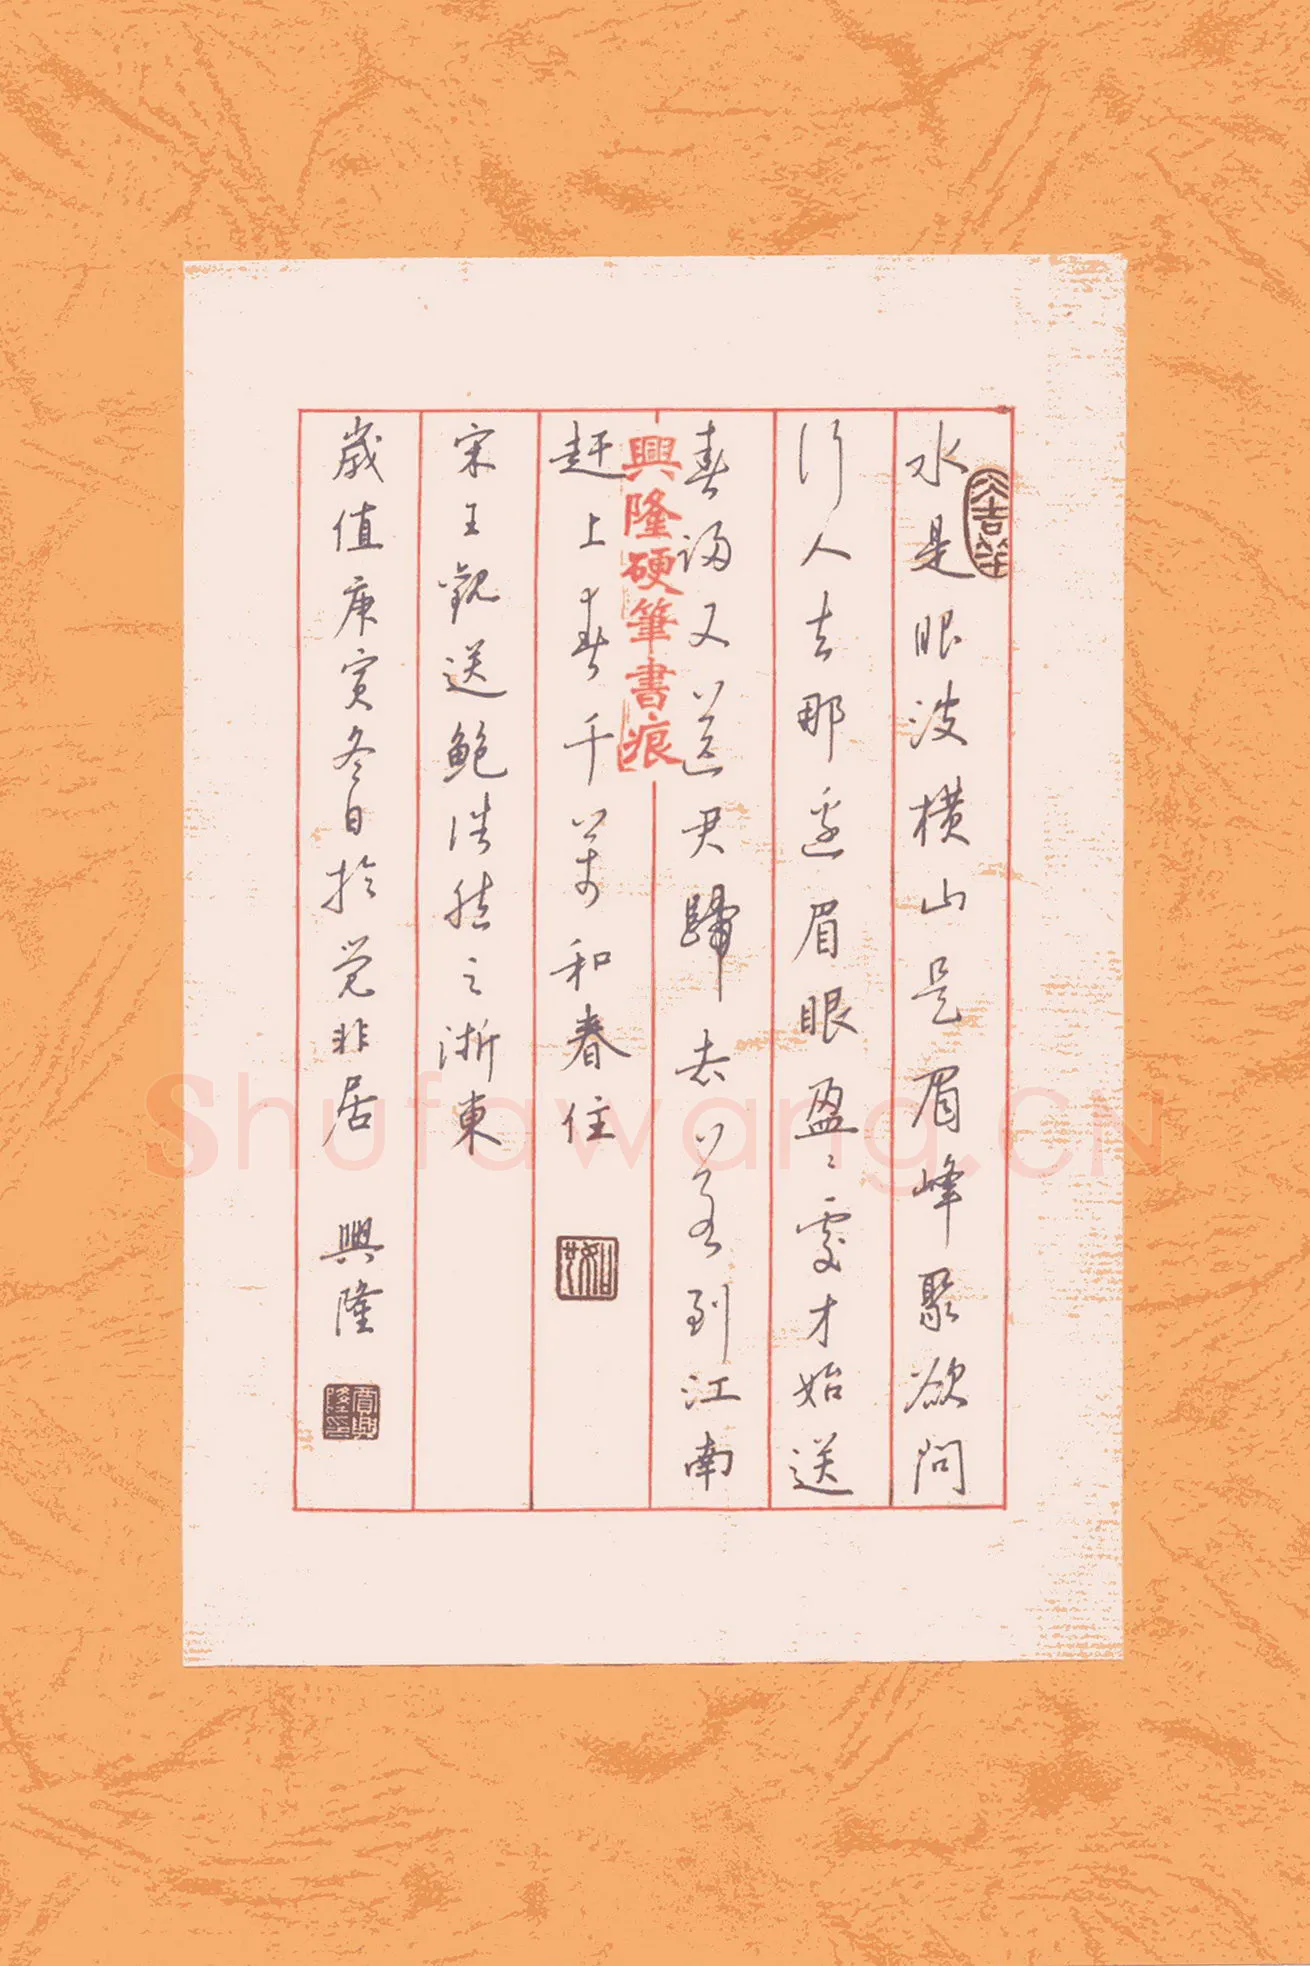 大吉羊
水是眼波横山是眉峰聚欲問
行人去那邊眉眼盈々處才始送
春歸又送君歸去若到江南
興隆硬筆書痕
赶上春千萬和春住
宋王觀送鮑浩然之浙東
歲值庚寅冬日於觉非居 興隆
賈興隆印
Shufawang.CN